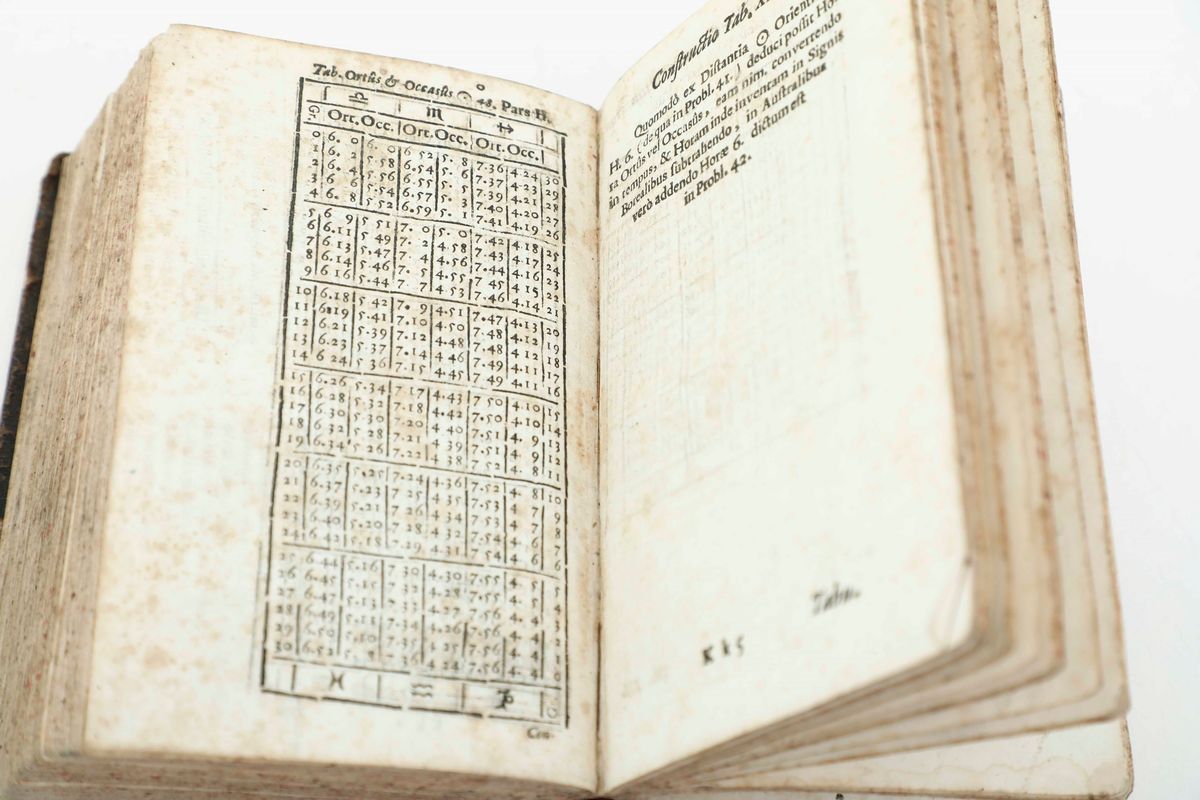 Tab. Ortûs & Occasûs ☉ 48. Pars H.
♎ ♏ ♐
G. Ort. Occ. Ort. Occ. Ort. Occ.
0 6. 0 6. 0 6 52 5. 8 7.36 4 24 30
1 6. 2 5.58 6.54 5. 6 7.37 4.23 29
2 6. 4 5.56 6.55 5. 5 7.39 4.21 28
3 6 6 5.54 6.57 5. 3 7.40 4.20 27
4 6. 8 5 52 6.59 5. 1 7.41 4.19 26
5 6 9 5 51 7. 0 5. 0 7.42 4.18 25
6 6.11 5 49 7. 2 4.58 7.43 4.17 24
7 6.13 5.47 7. 4 4.56 7.44 4.16 23
8 6.14 5.46 7. 5 4.55 7 45 4 15 22
9 6 16 5.44 7. 7 4 53 7.46 4.14 21
10 6.18 5 42 7. 9 4.51 7.47 4.13 20
11 6.19 5.41 7.10 4.50 7.48 4.12 19
12 6.21 5.39 7.12 4.48 7.48 4.12 18
13 6.23 5.37 7.14 4 46 7.49 4.11 17
14 6 24 5 36 7.15 4.45 7.49 4.11 16
15 6.26 5.34 7.17 4.43 7 50 4.10 15
16 6.28 5.32 7.18 4.42 7.50 4.10 14
17 6.30 5.30 7.20 4 40 7.51 4. 9 13
18 6.32 5.28 7.21 4 39 7.51 4. 9 12
19 6.34 5.26 7.22 4 38 7.52 4. 8 11
20 6.35 5.25 7.24 4.36 7.52 4. 8 10
21 6.37 5.23 7 25 4 35 7.53 4. 7 9
22 6.39 5.21 7 26 4 34 7.53 4. 7 8
23 6.40 5.20 7 28 4.32 7 54 4. 6 7
24 6 42 5.18 7.29 4.31 7.54 4. 6 6
25 6 44 5.16 7 30 4.30 7.55 4. 5 5
26 6.45 5.15 7 32 4.28 7.55 4. 5 4
27 6.47 5.13 7.33 4.27 7.56 4. 4 3
28 6.49 5.11 7.34 4.26 7.56 4. 4 2
29 6.50 5.10 7.35 4.25 7.56 4. 4 1
30 6.52 5. 8 7 36 4 24 7.56 4. 4 0
♓ ♒ ♑ G.
Con-
Constructio Tab.
Quomodò ex Distantia ☉ Orient
H. 6. (de qua in Probl. 41.) deduci possit Ho-
ra Ortûs vel Occasûs, eam nim. convertendo
in tempus, & Horam inde inventam in Signis
Borealibus subtrahendo, in Australibus
verò addendo Horæ 6. dictum est
in Probl. 42.
K k 5
Tabu.